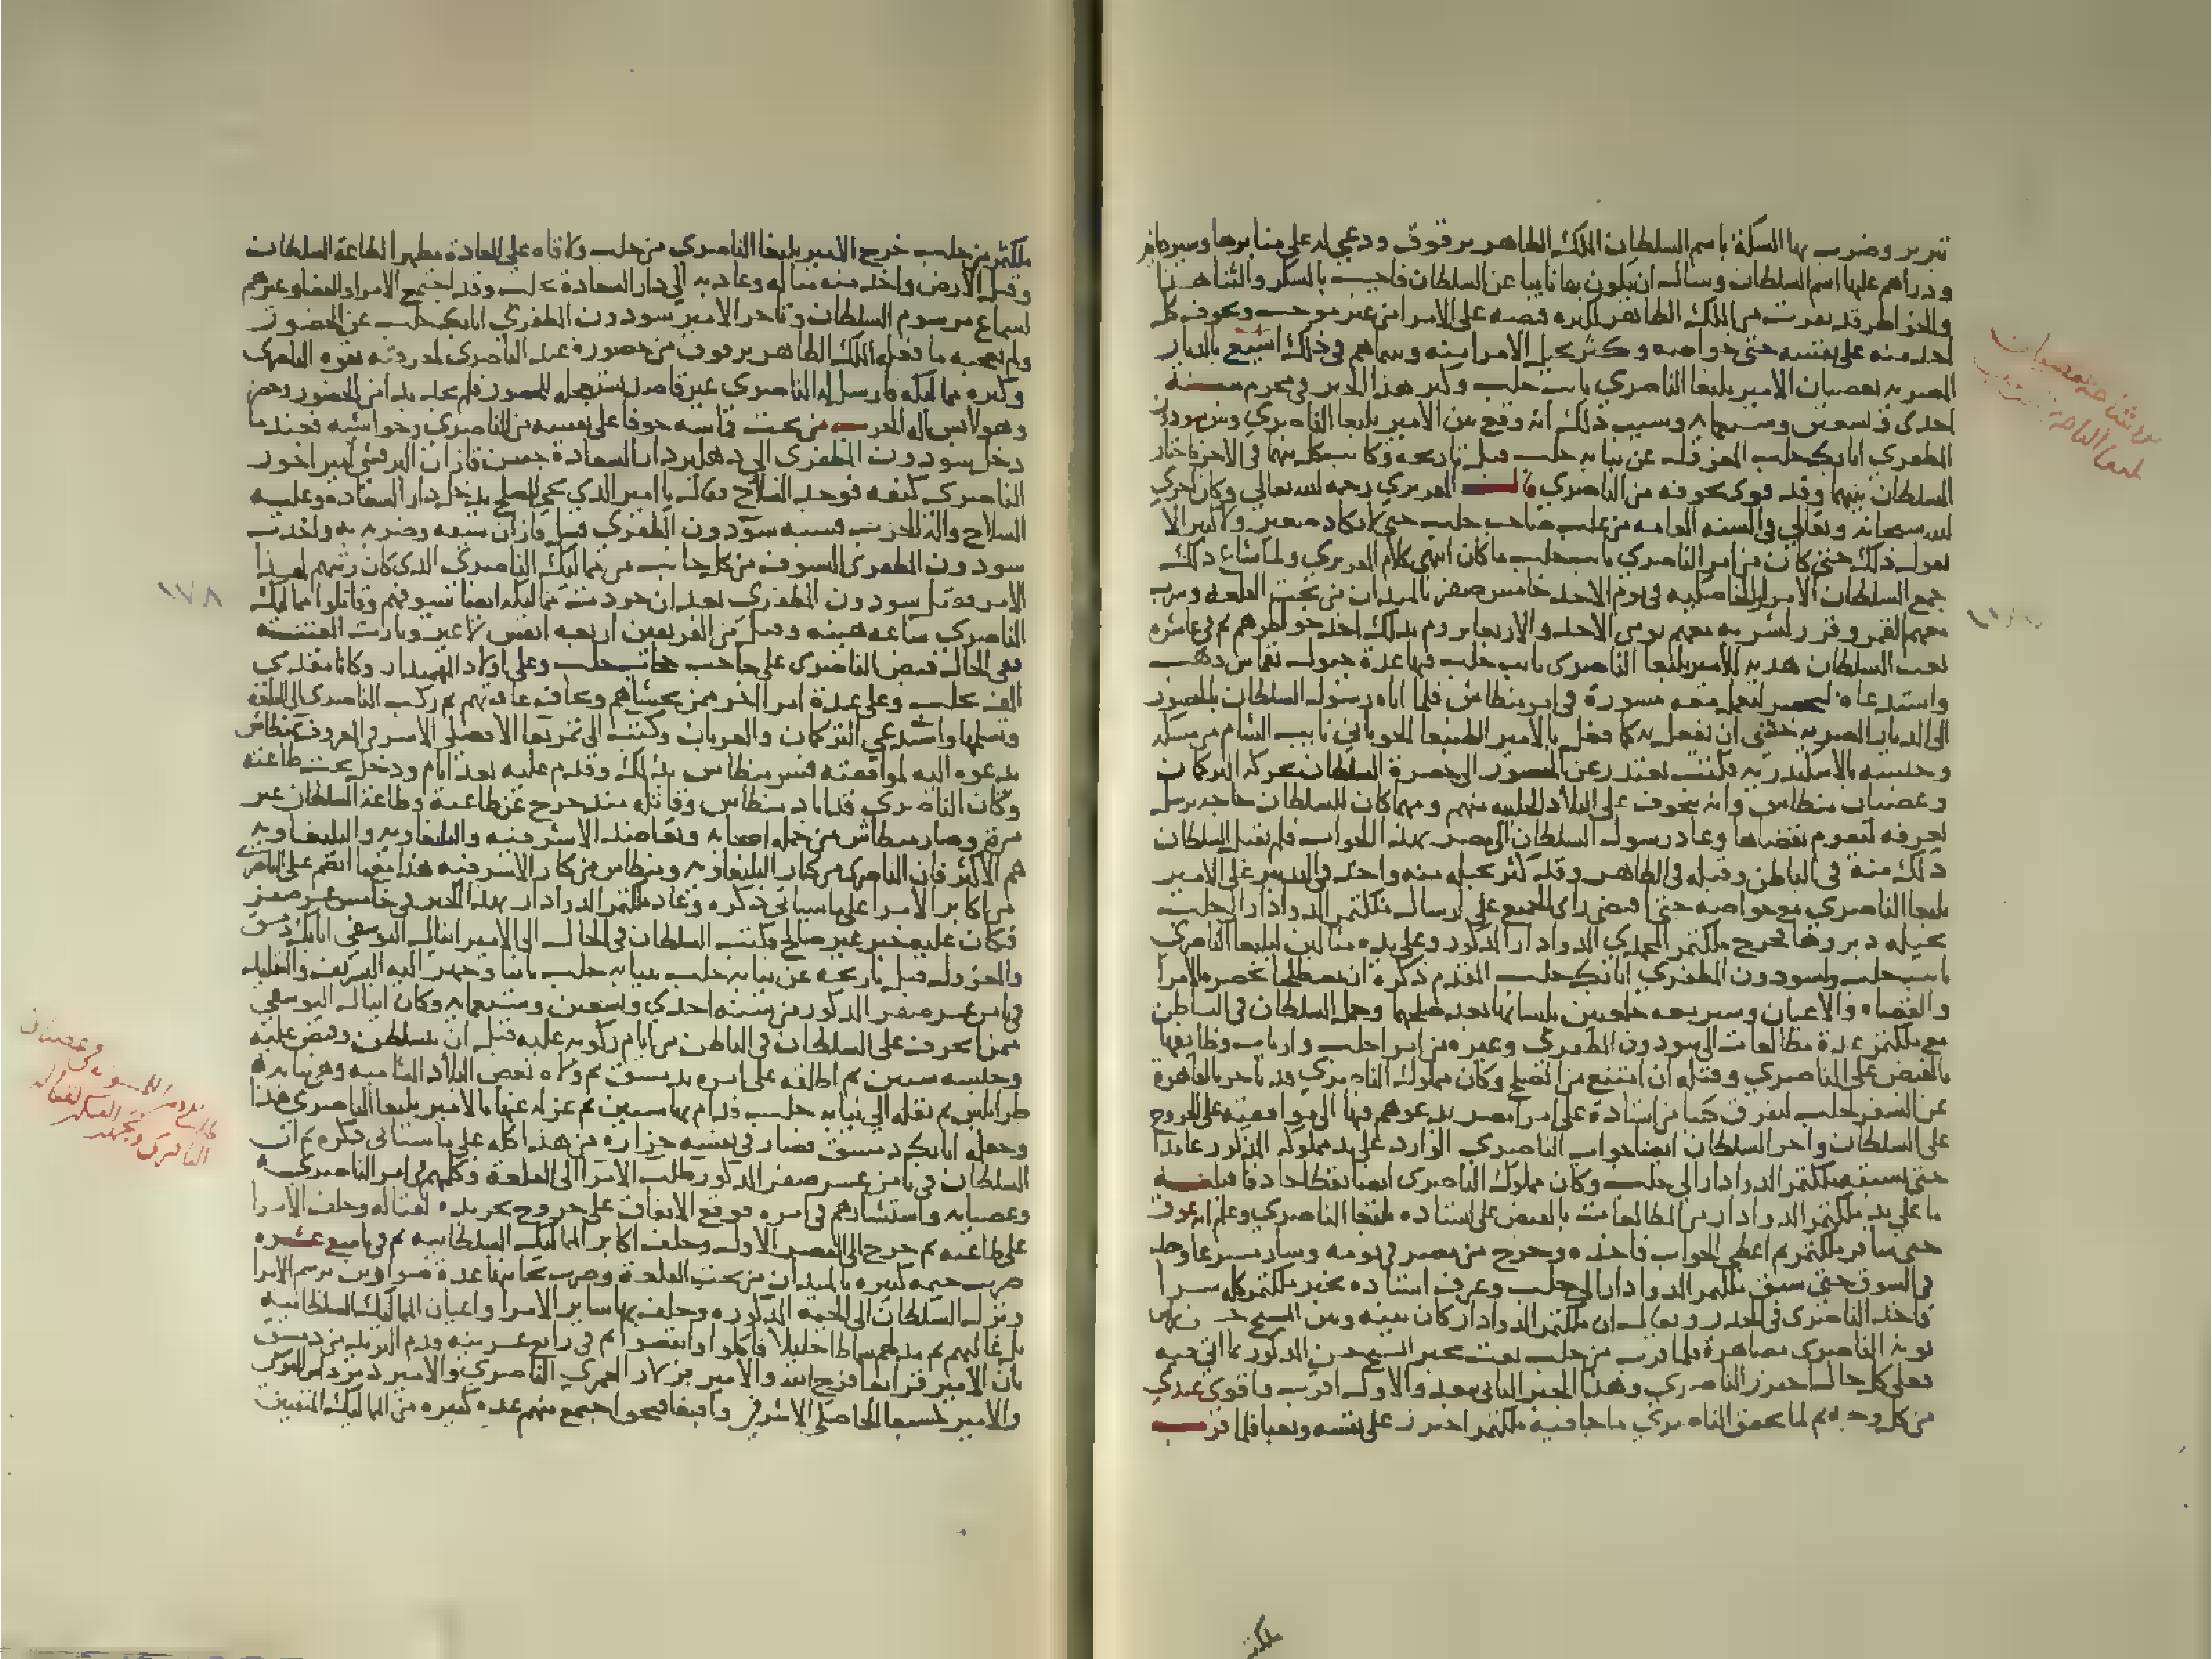 تبريز وضرب بها السكة باسم السلطان الملك الظاهر برقوق ودعي له على منابرها وسير دنانير
ودراهم عليها اسم السلطان وسال ان يكون بها نايبا عن السلطان فاجيب بالشكر والثناء هذا
والخواطر قد نفرت من الملك الظاهر لكثرة قبضه على الامرا من غير موجب وتخوف كل
احد منه على نفسه حتى خواصه وكثر تخيل الامرا منه وبينما هم في ذلك اشيع بالديار
المصريه بعصيان الامير يلبغا الناصري نايب حلب وكثر هذا الخبر في محرم سنة
احدى وتسعين وسبعمايه وسبب ذلك انه وقع بين الامير يلبغا الناصري وبين سودون
المظفري اتابك حلب المعزول عن نيابه حلب قبل تاريخه وكاتب كل منهما في الاخر فاختار
السلطان بينهما وقد قوى تخوفه من الناصري قال المقريزي رحمه الله تعالى وكان اجرى
الله سبحانه وتعالى في السنه العامه من غلب صاحب حلب حتى لا يكاد صغير ولا كبير الا
يقول ذلك حتى كان من امر الناصري نايب حلب ما كان انتهى كلام المقريزي ولما شاع ذلك
جمع السلطان الامرا الخاصكيه في يوم الاحد خامس صفر بالميدان من تحت القلعه وشرب
معهم القمز وقرر لشربه معهم يومي الاحد والاربعا يروم بذلك اخذ خواطرهم ثم في عاشره
بعث السلطان هديه للامير يلبغا الناصري نايب حلب فيها عدة خيول بقماش ذهب
واستدعاه ليحضر ليعمل معه مشورة في امر منطاش فلما اتاه رسول السلطان بالحضور
الى الديار المصريه خشي ان يفعل به كما فعل بالامير الطنبغا الجوباني نايب الشام من مسكه
وحبسه بالاسكندريه فكتب يعتذر عن الحضور الى حضرة السلطان بحركه التركمان
وعصيان منطاش وانه يتخوف على البلاد الحلبيه منهم ومهما كان للسلطان حاجه يرسل
يعرفه ليقوم بقضاها وعاد رسول السلطان الى مصر بهذا الجواب فلم يقبل السلطان
ذلك منه في الباطن وقبله في الظاهر وقد كثر تخيله منه واخذ في التدبير على الامير
يلبغا الناصري مع خواصه حتى اقتضى راى الجميع على ارسال ملكتمر الدوادار الى حلب
بحيله دبروها فخرج ملكتمر المحمدي الدوادار المذكور وعلى يده مثالين ليلبغا الناصري
نايب حلب ولسودون المظفري اتابك حلب المقدم ذكره ان يصطلحا بحضره الامرا
والقضاه والاعيان وسير معه خلعتين يلبسانها بعد صلحهما وحمل السلطان في الباطن
مع ملكتمر عدة مطالعات الى سودون المظفري وغيره من امرا حلب وارباب وظائفها
بالقبض على الناصري وقتله ان امتنع من الصلح وكان مملوك الناصري قد تاخر بالقاهرة
عن السفر لحلب ليفرق كتبا من استاده على امرا مصر يدعوهم فيها الى موافقته على الخروج
على السلطان واخر السلطان ايضا جواب الناصري الوارد على يد مملوكه المذكور عامدا
حتى يسبقه ملكتمر الدوادار الى حلب وكان مملوك الناصري ايضا يقظا حاذقا فبلغه
ما على يد ملكتمر الدوادار من المطالعات بالقبض على استاده يلبغا الناصري وعلم انه عوق
حتى سافر ملكتمر ثم اعطي الجواب فاخذه وخرج من مصر في يومه وسار مسرعا وجد
في السوق حتى سبق ملكتمر الدوادار الى حلب وعرف استاده بخبر ملكتمر كله سرا
فاخذ الناصري في الحذر ويقال ان ملكتمر الدوادار كان بينه وبين الشيخ حسن راس
نوبه الناصري مصاهرة فلما قرب من حلب بعث يخبر الشيخ حسن المذكور بما اتى فيه
فعلى كل حال احترز الناصري وهذا الخبر الثاني بعيد والاول اقرب واقوى عندي
من كل وجه ثم لما تحقق الناصري ما جا فيه ملكتمر احترز على نفسه وتعبا فلما قرب
ملكتمر
ملكتمر من حلب خرج الامير يلبغا الناصري من حلب ولاقاه على العادة مظهرا لطاعة السلطان
وقبل الارض واخذ منه مثاله وعاد به الى دار السعادة بحلب وقد اجتمع الامرا والقضاه وغيرهم
لسماع مرسوم السلطان وتاخر الامير سودون المظفري اتابك حلب عن الحضور
ولم يعجبه ما فعله الملك الظاهر برقوق من حضوره عند الناصري لمعرفته بقوه الناصري
وكثره مماليكه فارسل له الناصري غير قاصد يستعجله للحضور فلم يجد بدا من الحضور وحضر
وهو لابس اله الحرب من تحت قماشه خوفا على نفسه من الناصري وحواشيه فعندما
دخل سودون المظفري الى دهليز دار السعادة جس قازان اليرقشي امير اخور
الناصري كتفه فوجد السلاح فقال يا امير الذي يجي للصلح يدخل دار السعاده وعليه
السلاح واله الحرب فسبه سودون المظفري فسل قازان سيفه وضربه به واخذت
سودون المظفري السيوف من كل جانب من مماليك الناصري الذي كان رتبهم لهذا
الامر فقتل سودون المظفري بعد ان جردت مماليكه ايضا سيوفهم وقاتلوا مماليك
الناصري ساعه هينه وقتل من الفريقين اربعه انفس لا غير وثارت الفتنه
ففي الحال قبض الناصري على حاجب حجاب حلب وعلى اولاد المهمندار وكانا مقدمي
الف بحلب وعلى عدة امرا اخر ممن يخشاهم ويخاف عاقبتهم ثم ركب الناصري الى القلعه
وتسلمها واستدعي التركمان والعربان وكتب الى تمربغا الافضلي الاشرفي المعروف بمنطاش
يدعوه اليه لموافقته فسر منطاش بذلك وقدم عليه بعد ايام ودخل تحت طاعته
وكان الناصري قد اباد منطاش وقاتله منذ خرج عن طاعته وطاعة السلطان غير
مرة وصار منطاش من جمله اصحابه وتعاضد الاشرفيه واليلبغاويه واليلبغاويه
هم الاكثر فان الناصري من كبار اليلبغاويه ومنطاش من كبار الاشرفيه هذا مع ما انضم على الناصري
من اكابر الامرا على ما سياتي ذكره وعاد ملكتمر الدوادار بهذا الخبر في خامس عشر صفر
فكان عليه خبر غير صالح فكتب السلطان في الحال الى الامير اينال اليوسفي اتابك دمشق
والمعزول قبل تاريخه عن نيابه حلب بنيابه حلب ثانيا وجهز اليه التشريف والتقليد
في ثامن عشر صفر المذكور من سنه احدى وتسعين وسبعمايه وكان اينال اليوسفي
ممن انحرف على السلطان في الباطن من ايام ركوبه عليه قبل ان يتسلطن وقبض عليه
وحبسه سنين ثم اطلقه على امره بدمشق ثم ولاه بعض البلاد الشاميه وهي نيابه
طرابلس ثم نقله الى نيابه حلب فدام بها سنين ثم عزله عنها بالامير يلبغا الناصري هذا
وجعله اتابك دمشق فصار في نفسه حزازه من هذا كله على ما سياتي ذكره ثم ان
السلطان في ثامن عشر صفر المذكور طلب الامرا الى القلعة وكلمهم في امر الناصري
وعصيانه واستشارهم في امره فوقع الاتفاق على خروج تجريده لقتاله وحلف الامرا
على طاعته ثم خرج الى القصر الاول وحلف اكابر المماليك السلطانيه ثم في تاسع عشره
ضرب خيمه كبيره بالميدان من تحت القلعة وضرب بجانبها عدة صواوين برسم الامرا
ونزل السلطان الى الخيمة المذكوره وحلف بها ساير الامرا واعيان المماليك السلطانيه
بل غالبهم ثم مد لهم سماطا جليلا فاكلوا وانفضوا ثم في رابع عشرينه قدم البريد من دمشق
بان الامير قرابغا فرج الله والامير بزلار العمري الناصري والامير دمرداش اليوسفي
والامير كمشبغا الخاصكي الاشرفي واقبغا قبجق اجتمع معهم عدة كثيره من المماليك المنفيين
١٧٨